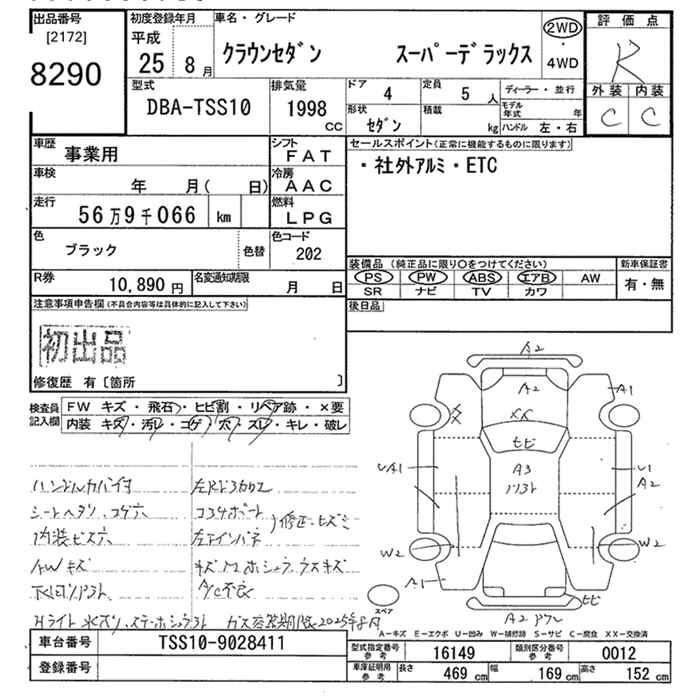 出品番号
[2172]
8290
初度登録年月
平成
25 8月
車名・グレード
クラウンセダン スーパーデラックス
2WD
・
4WD
評価点
R
外装 内装
C C
型式
DBA-TSS10
排気量
1998
CC
ドア 4
定員 5 人
形状
セダン
積載
kg
ディーラー・並行
モデル年式 年
ハンドル 左・右
車歴 事業用
シフト
FAT
車検 年 月( 日)
冷房
AAC
走行 56万9千066 km
燃料
LPG
色
ブラック
色替
色コード
202
R券 10,890円
名変通知期限 月 日
セールスポイント(正常に機能するものに限ります)
・社外アルミ・ETC
装備品(純正品に限り○をつけてください)
PS PW ABS エアB AW
SR ナビ TV カワ
新車保証書
有・無
後日品
注意事項申告欄(不具合内容等は具体的に記入して下さい)
初出品
修復歴 有〔箇所 〕
検査員記入欄
FW キズ・飛石・ヒビ割・リペア跡・×要
内装 キズ・汚レ・コゲ・穴・ズレ・キレ・破レ
ハンドルカバー付
シートヘタリ、コゲ穴
内装ビス穴
AWキズ
左Rドアカウエ
コアサポート
左インパネ
修正・ヒズミ
A/C不良
ガス容器期限2025年8月
A2
A2
A1
XX
ヒビ
A3
UA1
U1
A2
W2
W2
A1
ヒビ
A2
スペア
A-キズ E-エクボ U-凹み W-補修跡 S-サビ C-腐食 XX-交換済
車台番号 TSS10-9028411
登録番号
型式指定番号
参考
16149
類別区分番号
参考
0012
車庫証明用
参考
長さ 469 cm
幅 169 cm
高さ 152 cm